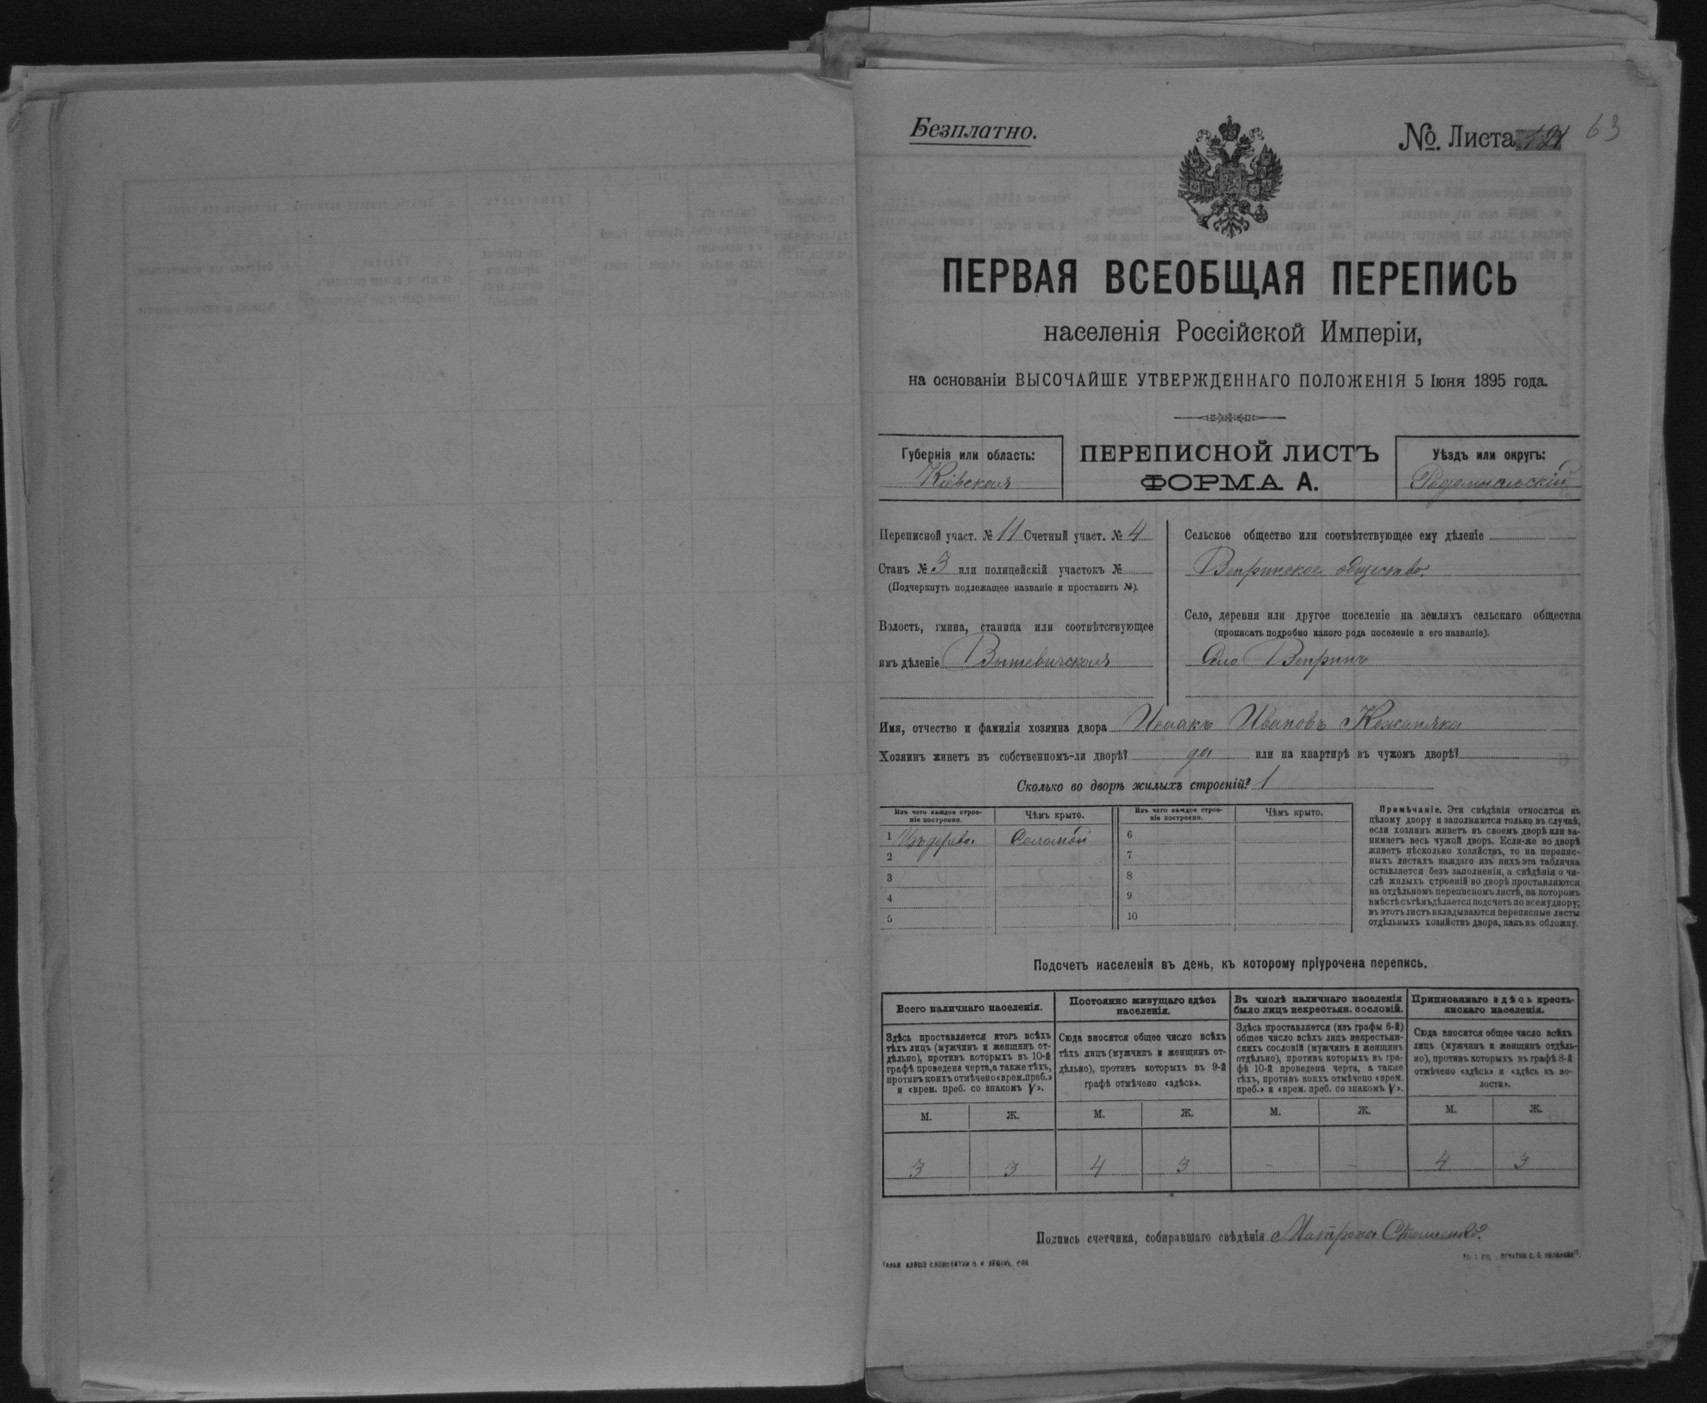 Безплатно.
№. Листа 63
ПЕРВАЯ ВСЕОБЩАЯ ПЕРЕПИСЬ
населенія Россійской Имперіи,
на основаніи ВЫСОЧАЙШЕ УТВЕРЖДЕННАГО ПОЛОЖЕНІЯ 5 Іюня 1895 года.
Губернія или область:
Кіевская
ПЕРЕПИСНОЙ ЛИСТЪ
ФОРМА А.
Уѣздъ или округъ:
Радомысльскій
Переписной участ. № 11 Счетный участ. № 4
Станъ № 3 или полицейскій участокъ №
(Подчеркнуть подлежащее названіе и проставить №).
Волость, гмина, станица или соотвѣтствующее
имъ дѣленіе Вышевичская
Сельское общество или соотвѣтствующее ему дѣленіе
Вепринское общество.
Село, деревня или другое поселеніе на земляхъ сельскаго общества
(прописать подробно какого рода поселеніе и его названіе).
Село Вепринъ
Имя, отчество и фамилія хозяина двора Исаакъ Ивановъ Кожемяка
Хозяинъ живетъ въ собственномъ-ли дворѣ? да или на квартирѣ въ чужомъ дворѣ?
Сколько во дворѣ жилыхъ строеній? 1
Изъ чего каждое строе-
ніе построено.
Чѣмъ крыто.
Изъ чего каждое строе-
ніе построено.
Чѣмъ крыто.
1 Изъ дерева. Соломой
2
3
4
5
6
7
8
9
10
Примѣчаніе. Эти свѣдѣнія относятся къ
цѣлому двору и заполняются только въ случаѣ,
если хозяинъ живетъ въ своемъ дворѣ или за-
нимаетъ весь чужой дворъ. Если-же во дворѣ
живетъ нѣсколько хозяйствъ, то на перепис-
ныхъ листахъ каждаго изъ нихъ эта табличка
оставляется безъ заполненія, а свѣдѣнія о чи-
слѣ жилыхъ строеній во дворѣ проставляются
на отдѣльномъ переписномъ листѣ, на которомъ
вмѣстѣ съ тѣмъ дѣлается подсчетъ по всему двору;
въ этотъ листъ вкладываются переписные листы
отдѣльныхъ хозяйствъ двора, какъ въ обложку.
Подсчетъ населенія въ день, къ которому пріурочена перепись.
Всего наличнаго населенія.
Здѣсь проставляется итогъ всѣхъ
тѣхъ лицъ (мужчинъ и женщинъ от-
дѣльно), противъ которыхъ въ 10-й
графѣ проведена черта, а также тѣхъ,
противъ коихъ отмѣчено «врем. преб.»
и «врем. преб. со знакомъ V».
Постоянно живущаго здѣсь
населенія.
Сюда вносится общее число всѣхъ
тѣхъ лицъ (мужчинъ и женщинъ от-
дѣльно), противъ которыхъ въ 9-й
графѣ отмѣчено «здѣсь».
Въ числѣ наличнаго населенія
было лицъ некрестьян. сословій.
Здѣсь проставляется (изъ графы 6-й)
общее число всѣхъ лицъ некрестьян-
скихъ сословій (мужчинъ и женщинъ
отдѣльно), противъ которыхъ въ гра-
фѣ 10-й проведена черта, а также
тѣхъ, противъ коихъ отмѣчено «врем.
преб.» и «врем. преб. со знакомъ V».
Приписаннаго здѣсь кресть-
янскаго населенія.
Сюда вносится общее число всѣхъ
лицъ (мужчинъ и женщинъ отдѣль-
но), противъ которыхъ въ графѣ 8-й
отмѣчено «здѣсь» и «здѣсь въ во-
лости».
М. Ж. М. Ж. М. Ж. М. Ж.
3 3 4 3 - - 4 3
Подпись счетчика, собиравшаго свѣдѣнія